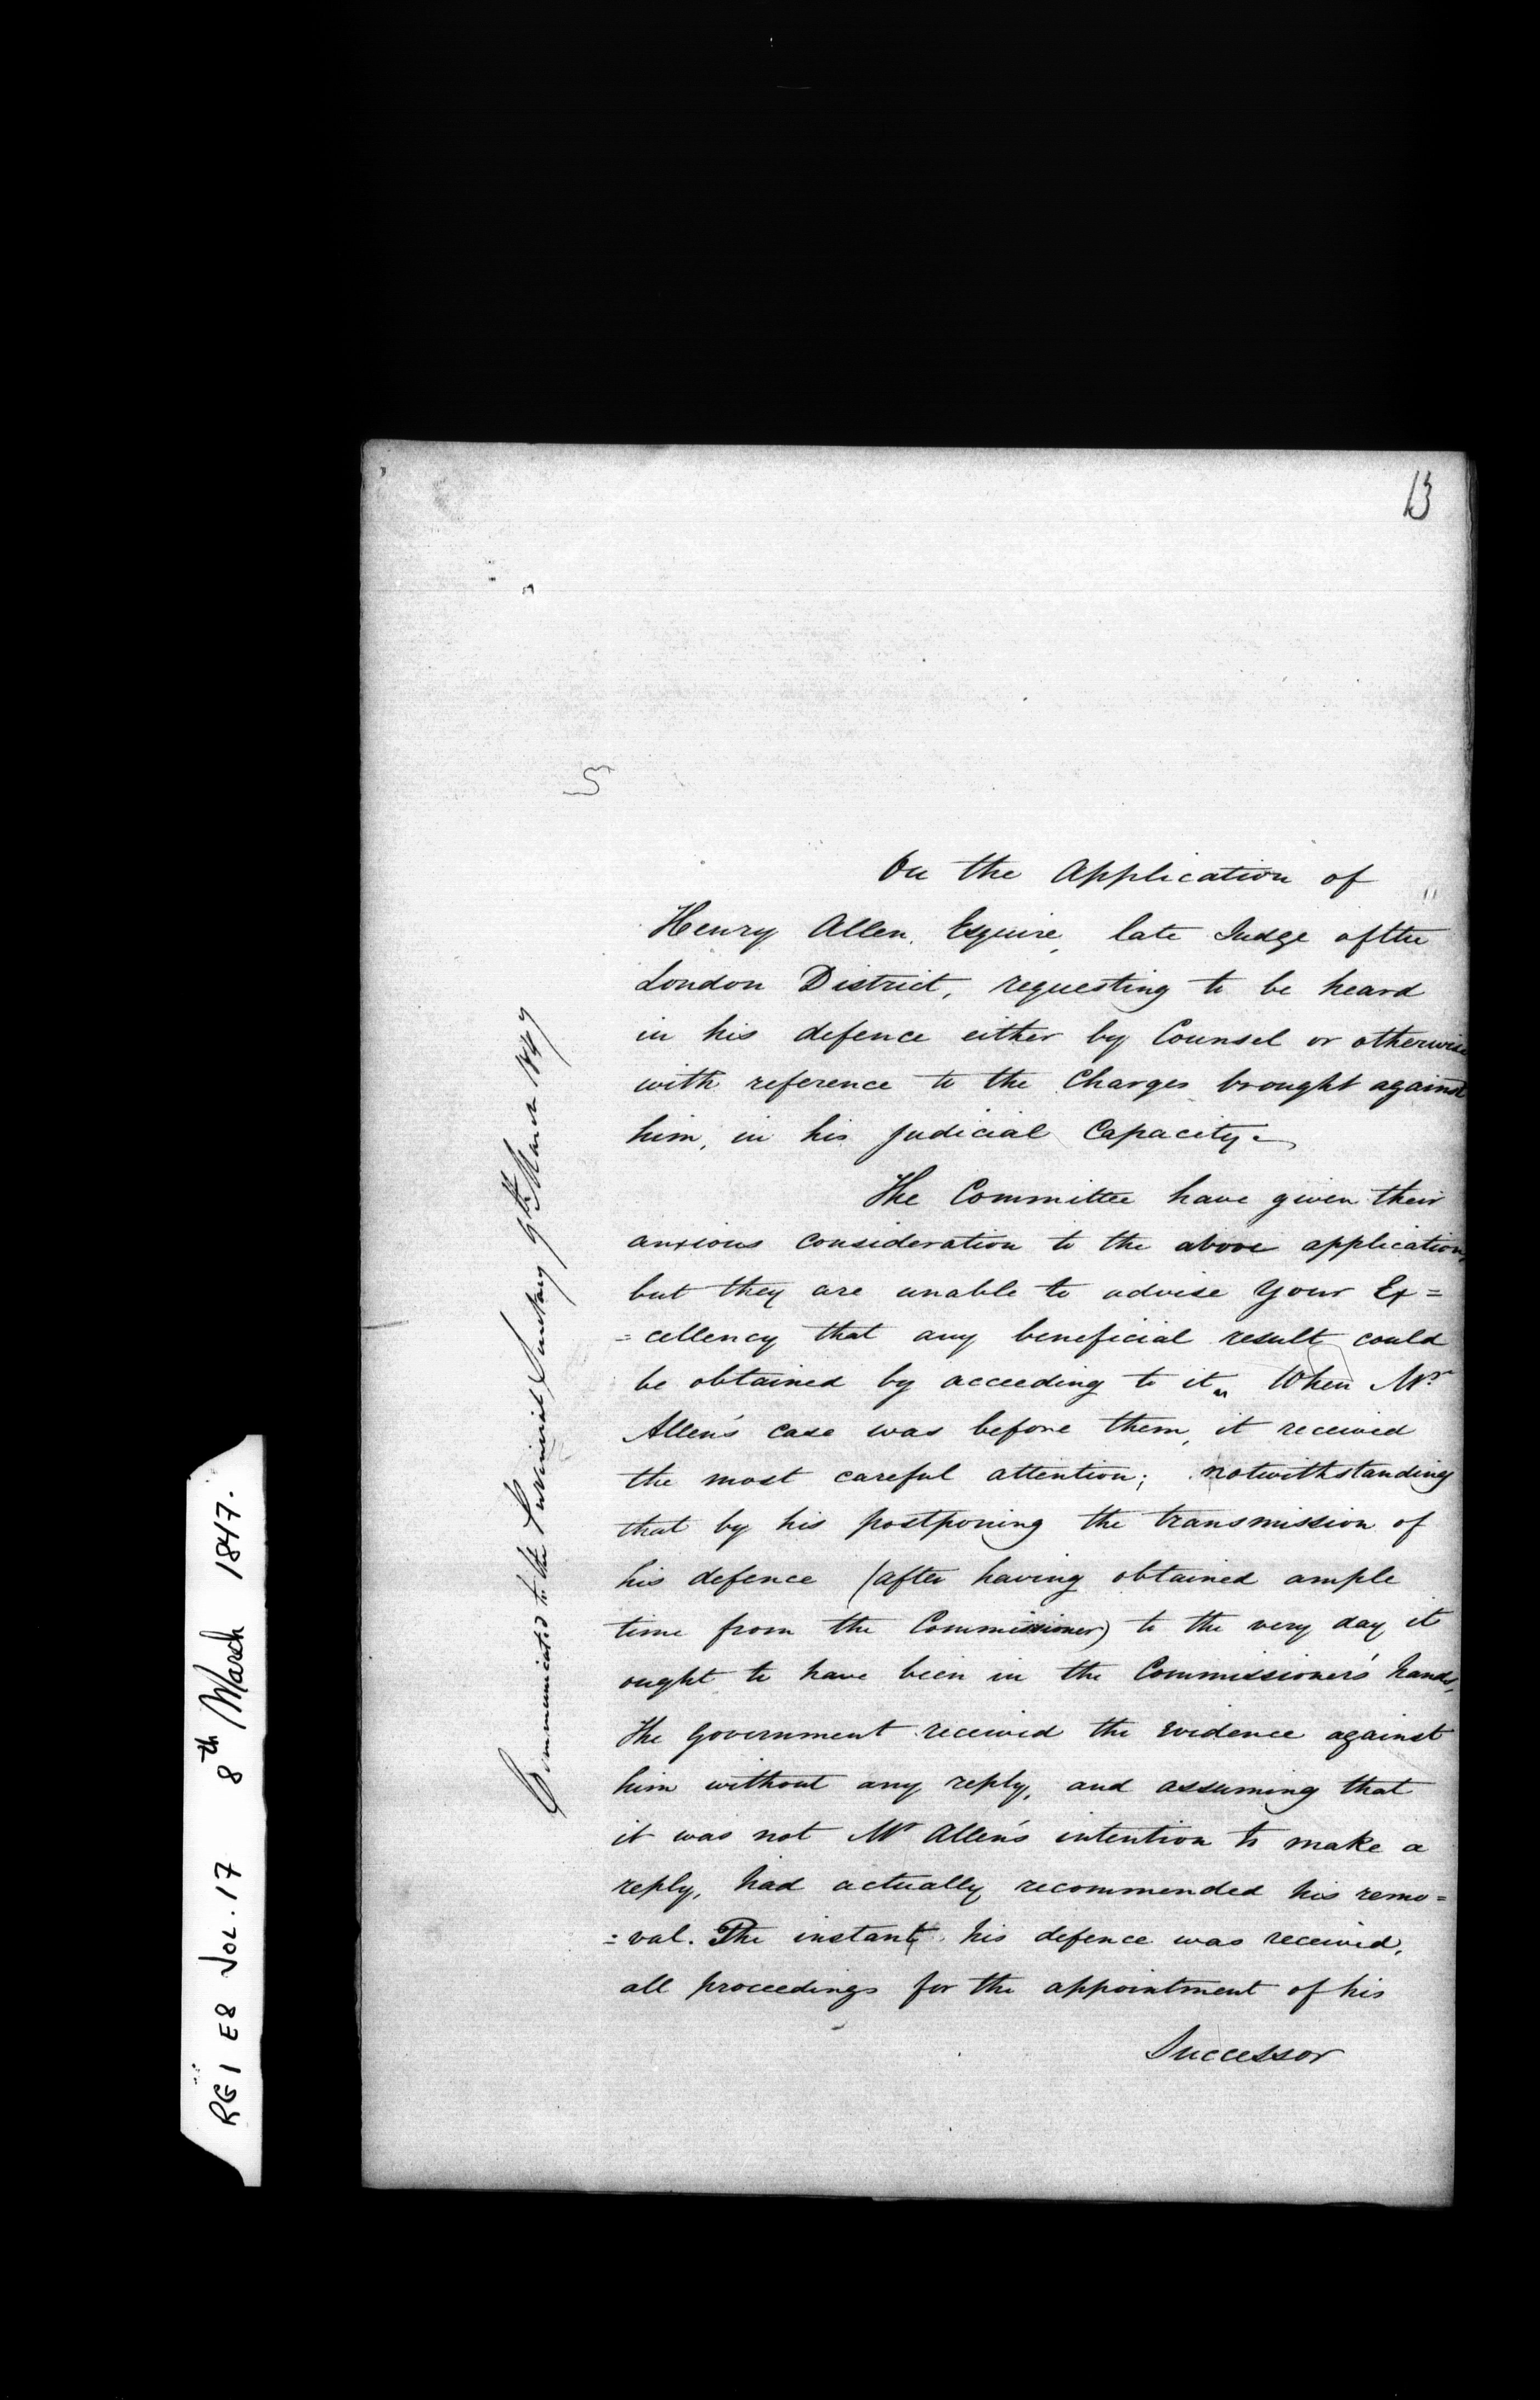 13
5
On the Application of
Henry Allen, Esquire, late Judge of the
London District, requesting to be heard
in his defence either by Counsel or otherwise
with reference to the Charges brought against
him, in his judicial Capacity.
The Committee have given their
anxious consideration to the above application,
but they are unable to advise Your Ex=
=cellency that any beneficial result could
be obtained by acceeding to it. When Mr
Allen's case was before them, it received
the most careful attention; notwithstanding
that by his postponing the transmission of
his defence (after having obtained ample
time from the Commissioner) to the very day it
ought to have been in the Commissioner's hands,
The Government received the Evidence against
him without any reply, and assuming that
it was not Mr Allen's intention to make a
reply, had actually recommended his remo=
=val. The instant his defence was received,
all proceedings for the appointment of his
Successor
Communicated to the Provincial Secretary 9th March 1847
RG 1 E8 VOL. 17 8th March 1847.